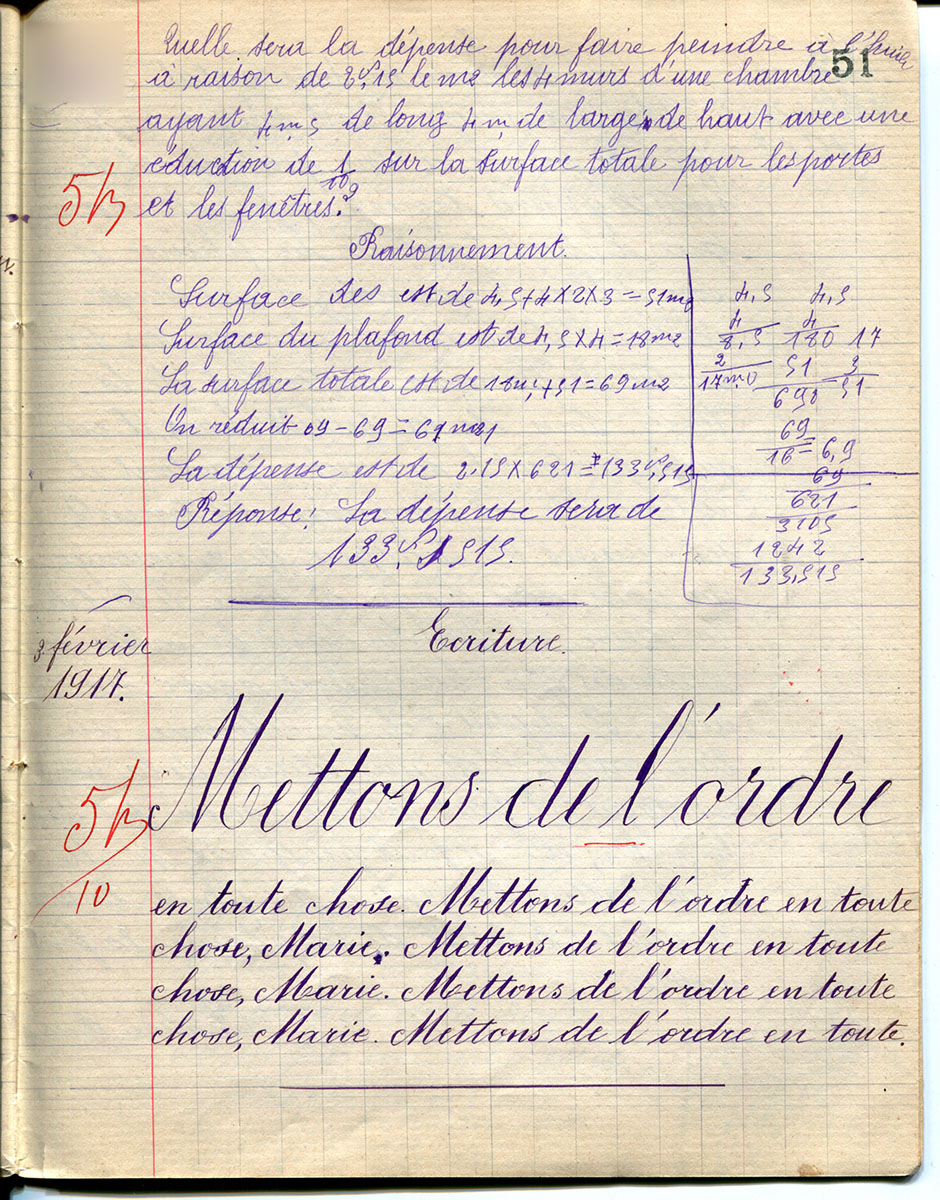 51
Quelle sera la dépense pour faire peindre à l'huile
à raison de 2f,15 le m2 les 4 murs d'une chambre
ayant 4m,5 de long 4m de large, de haut avec une
réduction de 1/10 sur la surface totale pour les portes
et les fenêtres?
5b
Raisonnement.
Surface des est de 4,5+4×2×3=51m2
Surface du plafond est de 4,5×4=18m2
La surface totale est de 18m2+51=69m2
On réduit
La dépense est de 2.15×621=133f,515
Réponse! La dépense sera de
133f,515.
4,5 4,5
4 4
8,5 180 17
2 51 3
17m0 690 51
69
10 = 6,9
69
621
3105
1242
133,515
3 février
1917.
Ecriture.
5b
10
Mettons de l'ordre
en toute chose. Mettons de l'ordre en toute
chose, Marie. Mettons de l'ordre en toute
chose, Marie. Mettons de l'ordre en toute
chose, Marie. Mettons de l'ordre en toute.